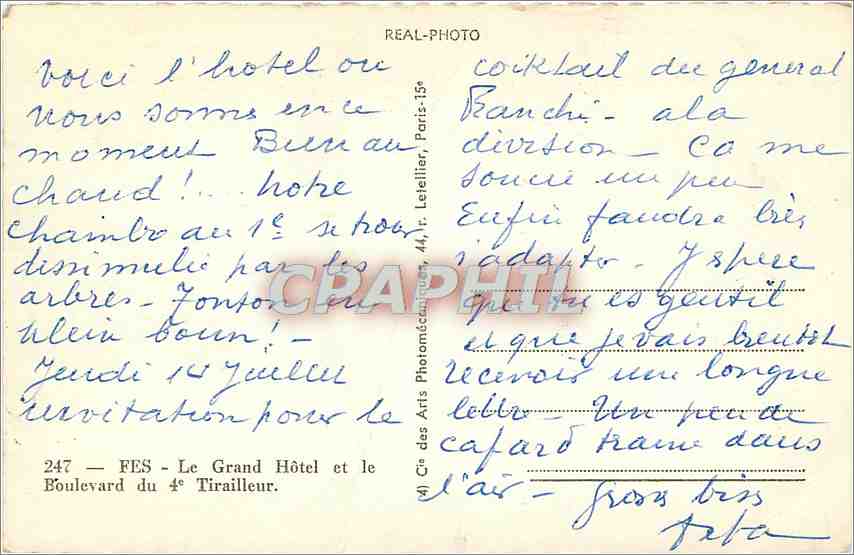 REAL-PHOTO
Voici l'hotel ou
nous sommes en ce
moment Bien au
chaud!.. Notre
chambre au 1e se trouve
dissimulée par les
arbres - Tonton en
plein boum! -
Jeudi 14 Juillet
invitation pour le
247 — FES - Le Grand Hôtel et le
Boulevard du 4e Tirailleur.
4) Cie des Arts Photomécaniques, 44, r. Letellier, Paris-15e
CPARPHIL
cocktail du general
a la
division - Ca me
soucie un peu
Enfin faudra bien
s'adapter - J'espere
que tu es gentil
et que je vais bientot
recevoir une longue
lettre - Un peu de
cafard traine dans
l'air - Gross biss